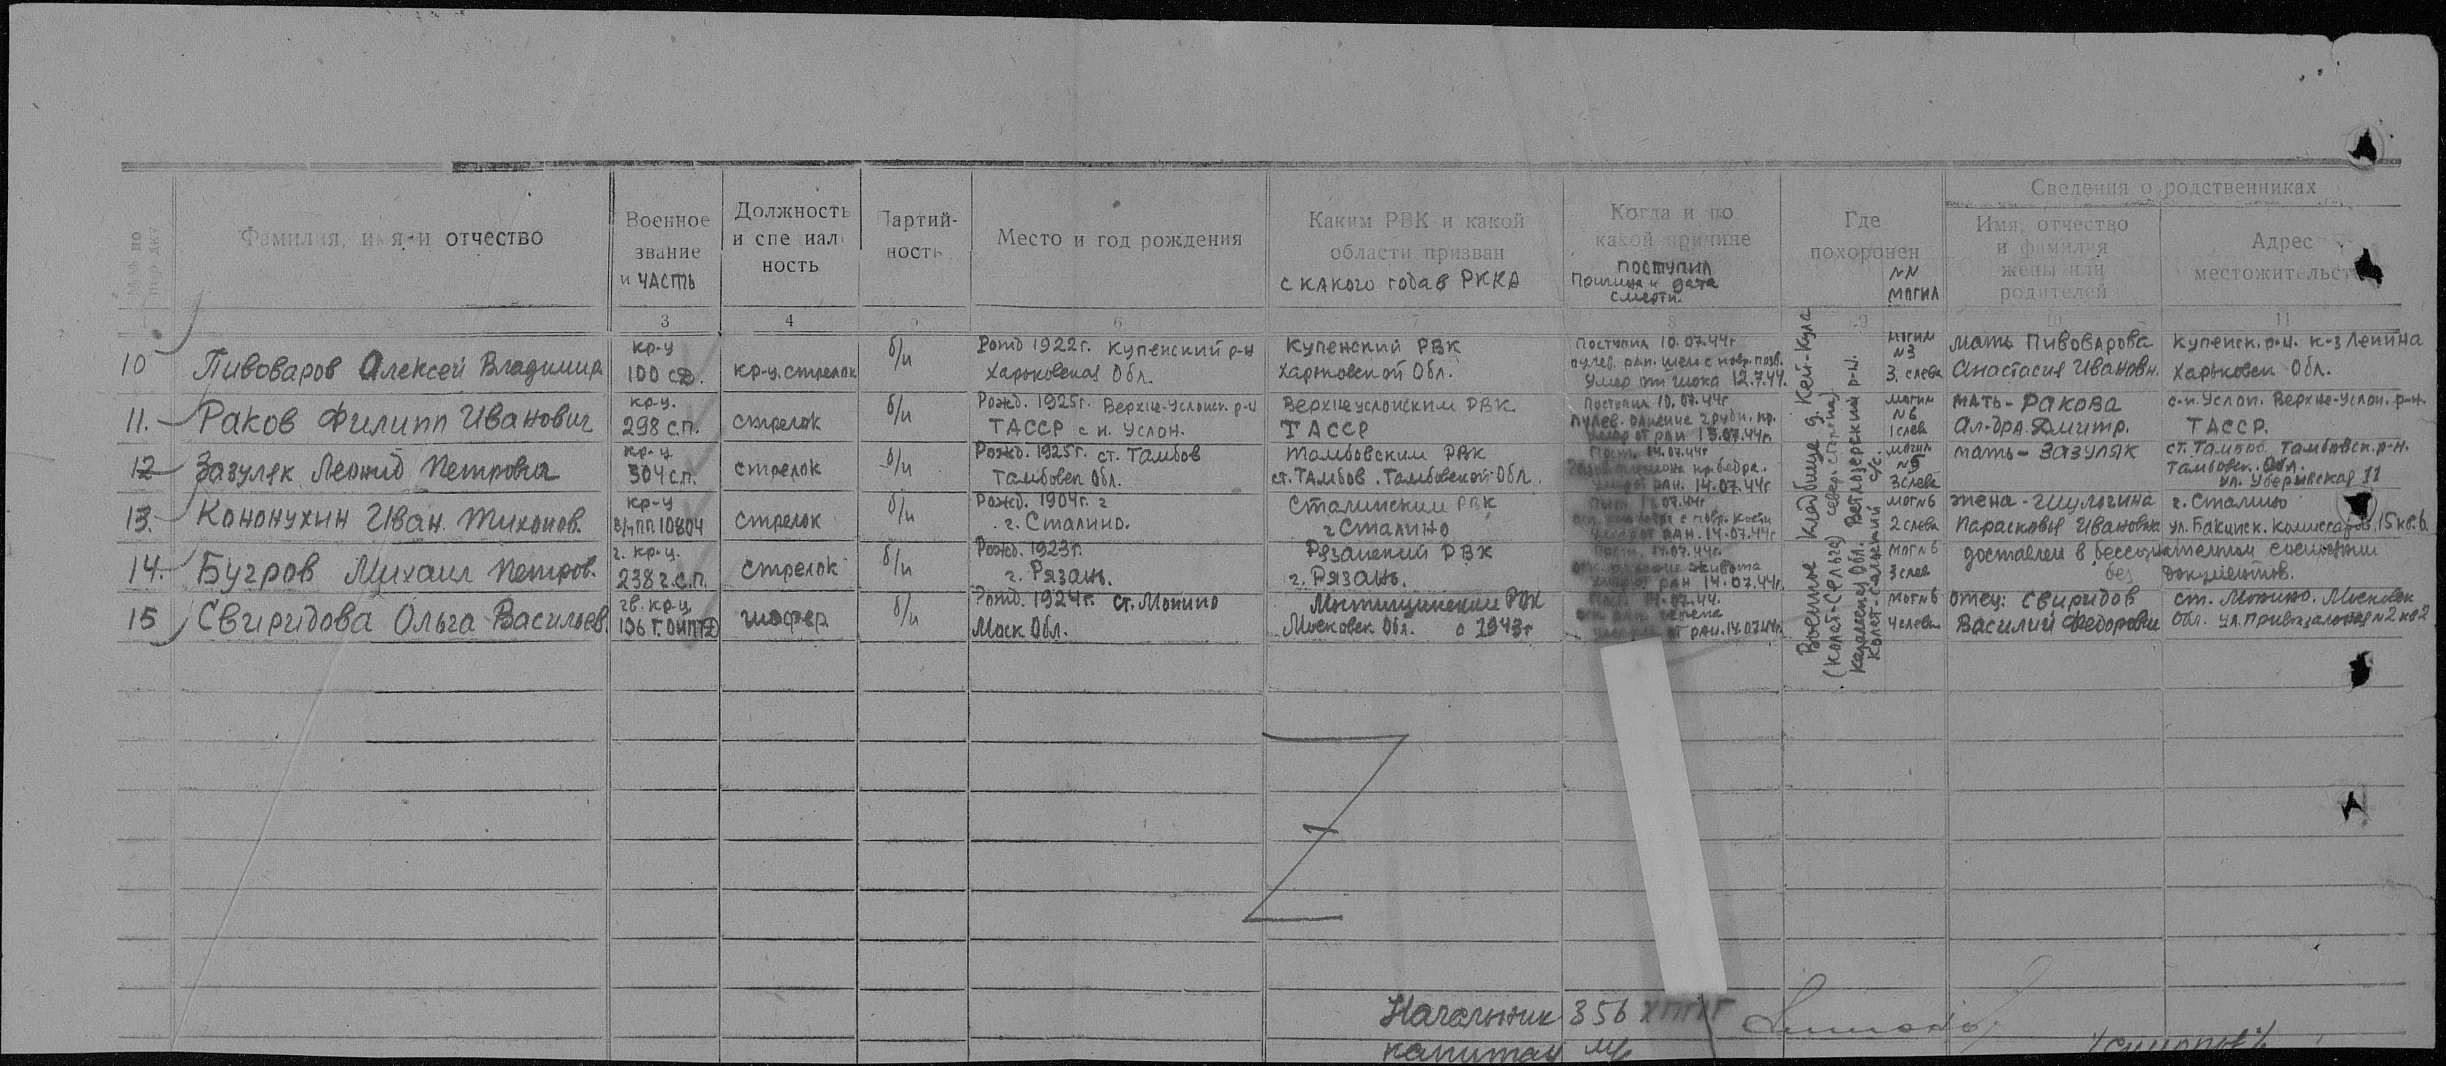 Сведения о родственниках
№№ по
пор дку
Фамилия, имя и отчество
Военное
звание
и часть
Должность
и спе иаль
ность
Партий-
ность
Место и год рождения
Каким РВК и какой
области призван
с какого года в РККА
Когда и по
какой причине
поступил
Причина и дата
смерти
Где
похоронен
NN
могил
Имя, отчество
и фамилия
жены или
родителей
Адрес
местожительст
3 4 5 6 7 8 9 10 11
10 Пивоваров Алексей Владимир
кр-ц
100 сд.
кр-ц. стрелок
б/п
Рожд 1922г. Купенский р-н
Харьковская Обл.
Купенский РВК
Харьковской Обл.
Поступил 10.07.44г
Умер от шока 12.7.44.
могил
N3
3. слева
мать Пивоварова
Анастасия Ивановн.
Купенск. р-н. к-з Ленина
Харьковск Обл.
11. Раков Филипп Иванович
кр-ц.
298 с.п.
стрелок
б/п
Рожд. 1925г. Верхне-Услонск. р-н
ТАССР с н. Услон.
Верхнеуслонским РВК
ТАССР
Поступил 10.07.44г
Пулев. ранение груди. пр.
умер от ран 13.07.44г.
могил
N6
1 слев
мать-Ракова
Ал-дра Дмитр.
с-н. Услон. Верхне-Услон. р-н.
ТАССР.
12 Зазуляк Леонид Петрович
кр-ц
304 с.п.
стрелок
б/п
Рожд. 1925г. ст. Тамбов
Тамбовск Обл.
Тамбовским РВК
ст. Тамбов. Тамбовской Обл.
Пост. 14.07.44г
пр. бедра.
умер от ран. 14.07.44г
могил
N5
3 слева
мать-Зазуляк
ст. Тамбов Тамбовск. р-н.
Тамбовск. Обл.
13. Кононухин Иван Тихонов.
кр-ц
в/ч пп 10804
стрелок
б/п
Рожд. 1904г. г
г. Сталино.
Сталинским РВК
г Сталино
с повр. кости
умер от ран. 14.07.44г
мог N6
2 слева
жена-Шульгина
Парасковья Ивановна
г. Сталино
ул. Бакинск. комиссаров, 15 кв. 6.
14. Бугров Михаил Петров.
г. кр-ц.
238 г.с.п.
стрелок
б/п
Рожд. 1923г.
г. Рязань.
Рязанский РВК
г. Рязань.
Пост. 14.07.44г.
живота
умер от ран 14.07.44г.
могл 6
3 слев
доставлен в бессознательном состоянии
без документов.
15 Свиридова Ольга Васильев.
гв. кр-ц
шофер
б/п
Рожд. 1924г. ст. Монино
Моск Обл.
Мытищинским РВК
Московск Обл. с 1943г
Пост. 14.07.44.
умерла от ран. 14.07.44г.
мог N6
4 слева
отец: Свиридов
Василий Федорович
ст. Монино. Московск
Обл. ул. Привокзальная N2 кв 2
Военное кладбище д. Кей-Кула
(Колат-Сельга) север. сторона,
Обл. Ведлозерский р-н.
с/с.
Начальник 856 ХППГ
капитан м/с